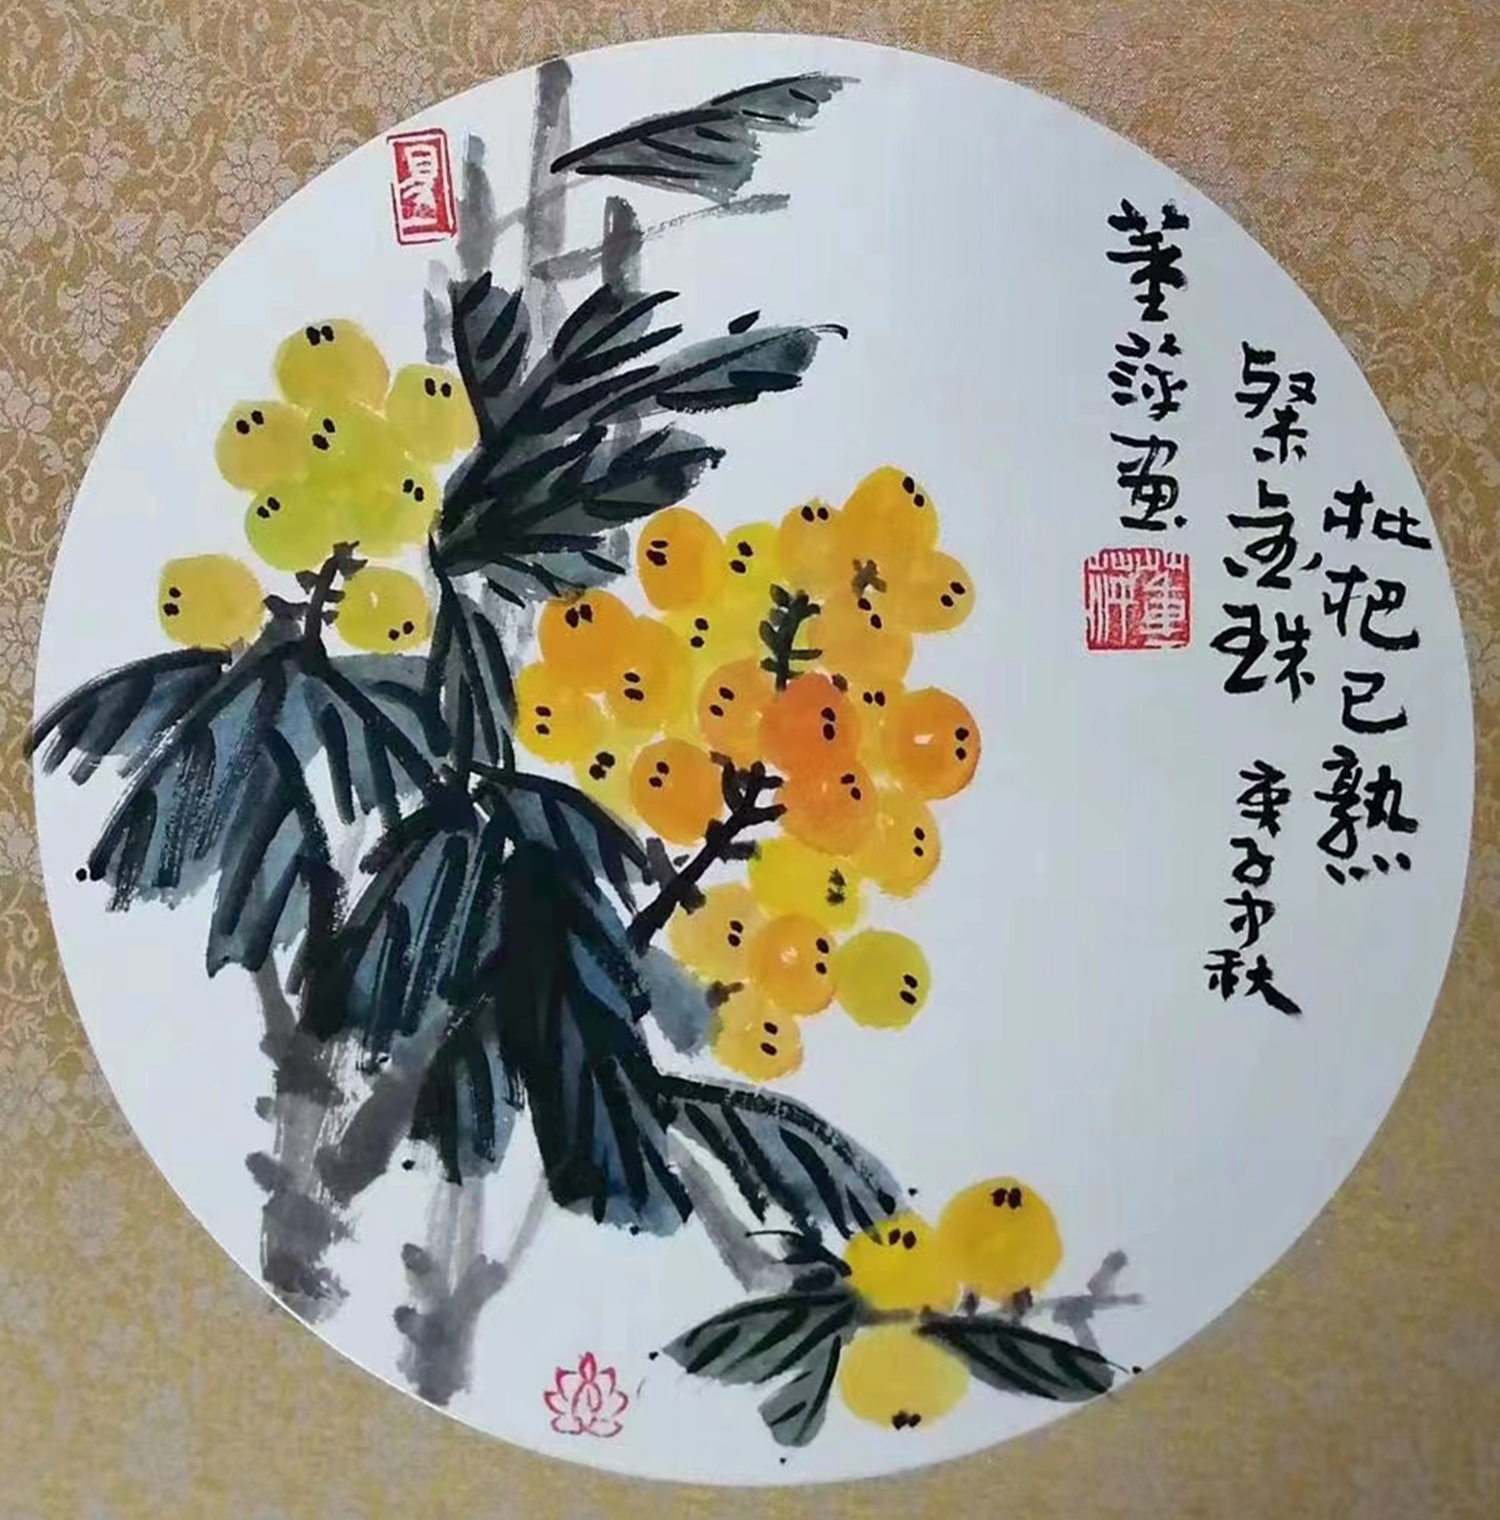 枇杷已熟
粲金珠 庚子中秋
董萍畫
董萍